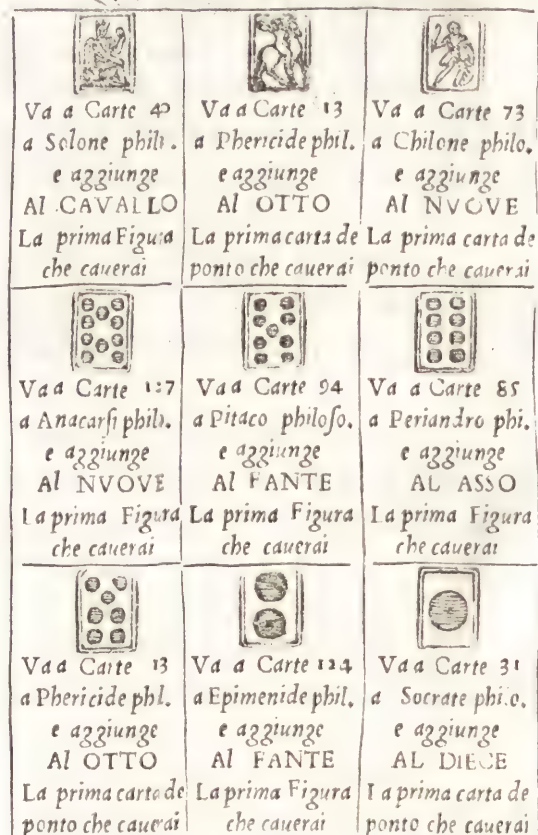 Va a Carte 40
a Solone phil.
e aggiunge
Al CAVALLO
La prima Figura
che cauerai
Va a Carte 13
a Phericide phil.
e aggiunge
Al OTTO
La prima carta de
ponto che cauerai
Va a Carte 73
a Chilone philo.
e aggiunge
Al NVOVE
La prima carta de
ponto che cauerai
Va a Carte
a Anacarsi philo.
e aggiunge
Al NVOVE
La prima Figura
che cauerai
Va a Carte 94
a Pitaco philoſo.
e aggiunge
Al FANTE
La prima Figura
che cauerai
Va a Carte 85
a Periandro phi.
e aggiunge
AL ASSO
La prima Figura
che cauerai
Va a Carte 13
a Phericide phl.
e aggiunge
Al OTTO
La prima carta de
ponto che cauerai
Va a Carte 124
a Epimenide phil.
e aggiunge
Al FANTE
La prima Figura
che cauerai
Va a Carte 31
a Socrate philo.
e aggiunge
AL DIECE
La prima carta de
ponto che cauerai